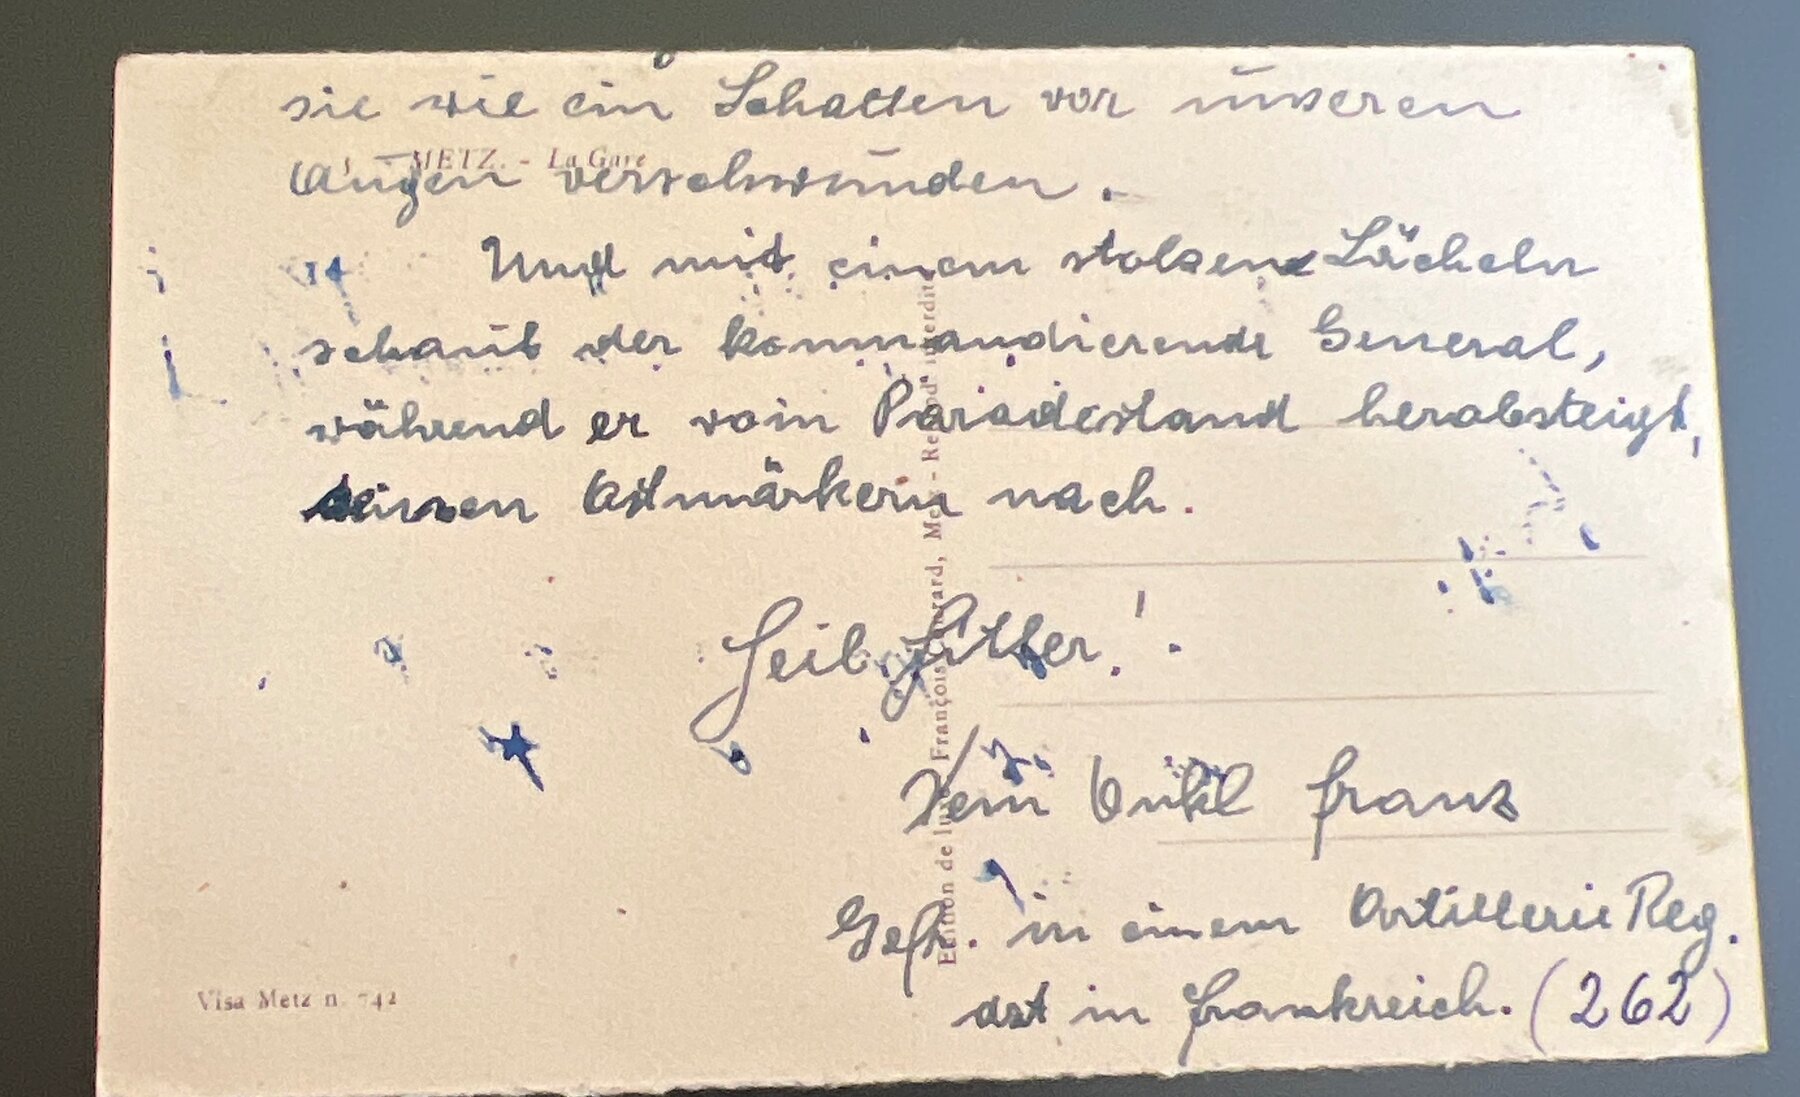 sie wie ein Schatten vor unseren
METZ. - La Gare
Augen verschwunden.
Und mit einem stolzen Lächeln
schaut der kommandierende General,
während er vom Paradestand herabsteigt,
seinen Ostmärkern nach.
Heil Hitler!
Dein Onkel Franz
Gefr. in einem Artillerie Reg.
dzt in Frankreich. (262)
Visa Metz n. 742
Edition de luxe François, Metz - Reprod. interdite